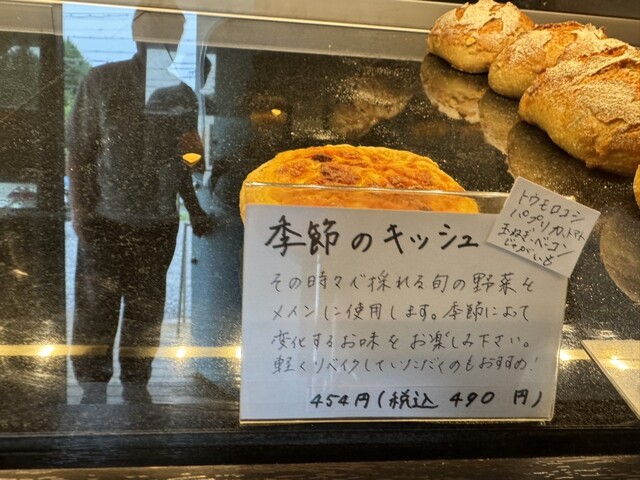 季節のキッシュ
その時々で採れる旬の野菜を
メインに使用します。季節によって
変化するお味をお楽しみ下さい。
軽くリベイクしていただくのもおすすめ!
454円(税込 490 円)
トウモロコシ
パプリカ、トマト
玉ねぎ・ベーコン
じゃがいも